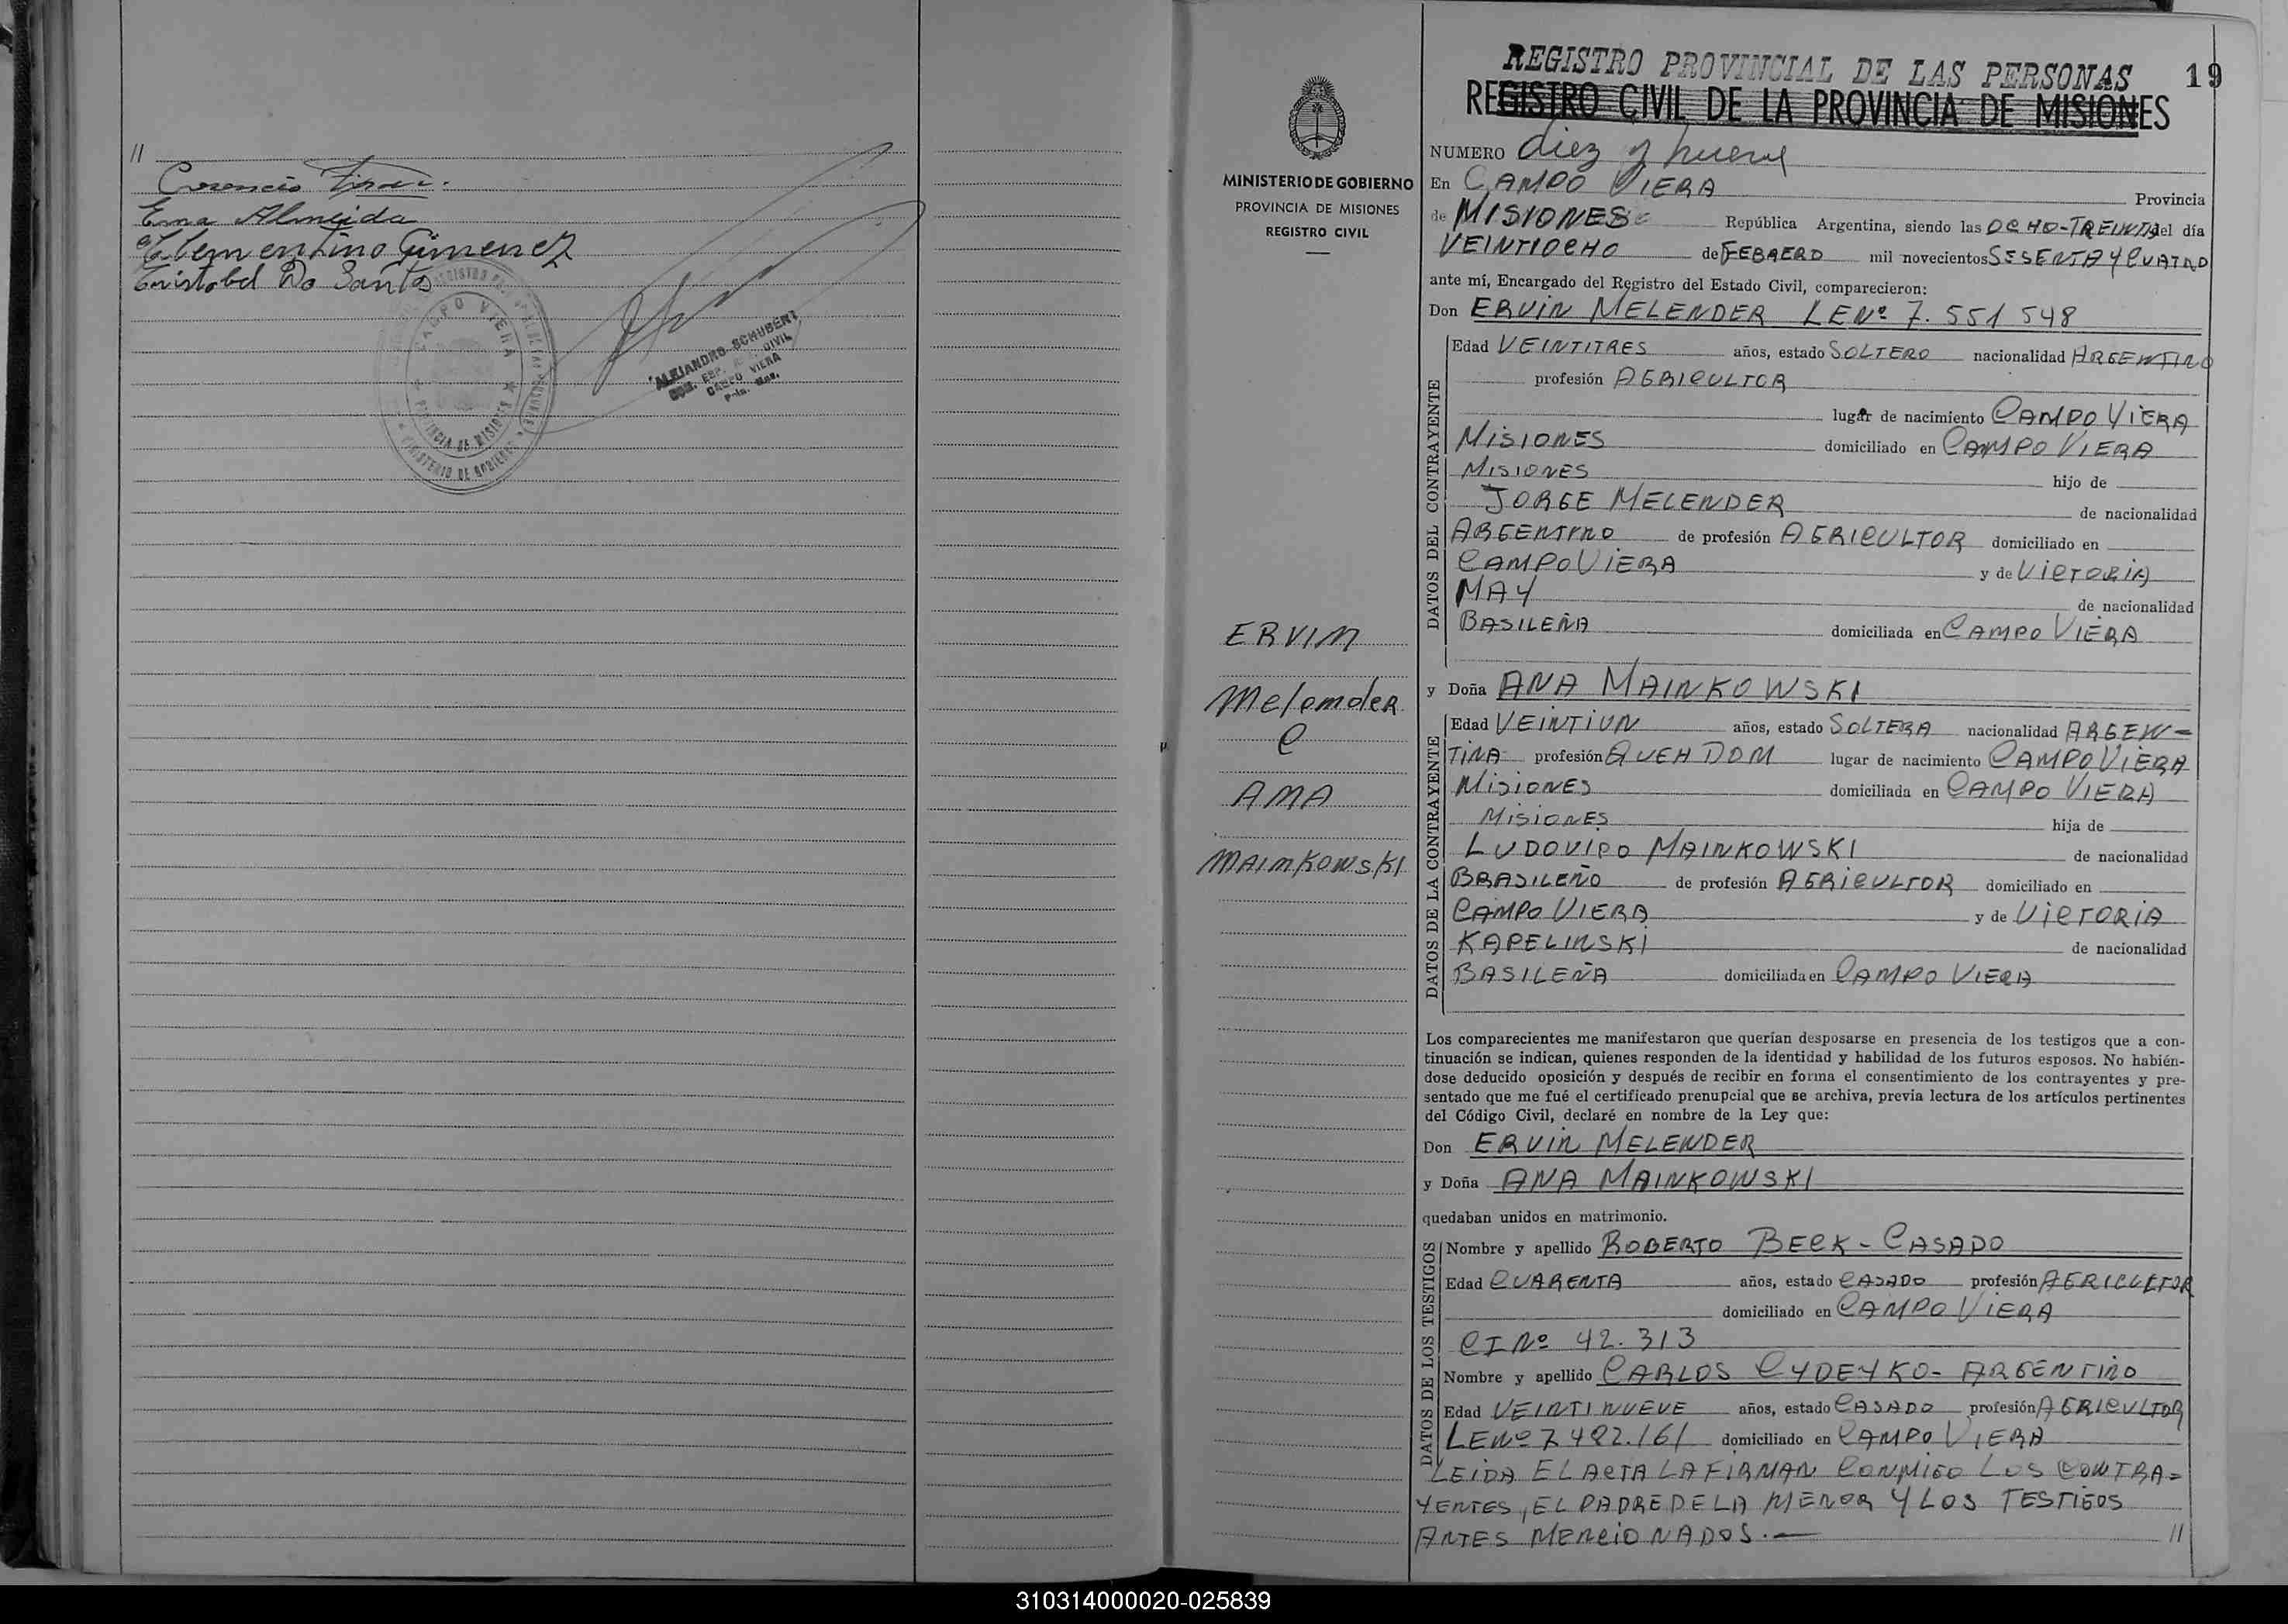 //
Ema Almeida
Clementino Gimenez
Cristobal Do Santos
CAMPO VIERA
PROVINCIA DE MISIONES
MINISTERIO DE GOBIERNO
ALEJANDRO SCHUBERT
CAMPO VIERA
REGISTRO PROVINCIAL DE LAS PERSONAS 19
REGISTRO CIVIL DE LA PROVINCIA DE MISIONES
MINISTERIO DE GOBIERNO
PROVINCIA DE MISIONES
REGISTRO CIVIL
ERVIN
Melender
e
ANA
MAINKOWSKI
NUMERO diez y nueve
En CAMPO VIERA Provincia
de MISIONES República Argentina, siendo las OCHO-TREINTA del día
VEINTIOCHO de FEBRERO mil novecientos SESENTA Y CUATRO
ante mí, Encargado del Registro del Estado Civil, comparecieron:
Don ERVIN MELENDER LE Nº 7.551548
DATOS DEL CONTRAYENTE
Edad VEINTITRES años, estado SOLTERO nacionalidad ARGENTINO
profesión AGRICULTOR
lugar de nacimiento CAMPO VIERA
MISIONES domiciliado en CAMPO VIERA
MISIONES hijo de
JORGE MELENDER de nacionalidad
ARGENTINO de profesión AGRICULTOR domiciliado en
CAMPO VIERA y de VICTORIA
MAY de nacionalidad
BASILEÑA domiciliada en CAMPO VIERA
y Doña ANA MAINKOWSKI
DATOS DE LA CONTRAYENTE
Edad VEINTIUN años, estado SOLTERA nacionalidad ARGEN=
TINA profesión QUEH DOM lugar de nacimiento CAMPO VIERA
MISIONES domiciliada en CAMPO VIERA
MISIONES hija de
LUDOVICO MAINKOWSKI de nacionalidad
BRASILEÑO de profesión AGRICULTOR domiciliado en
CAMPO VIERA y de VICTORIA
KAPELINSKI de nacionalidad
BASILEÑA domiciliada en CAMPO VIERA
Los comparecientes me manifestaron que querían desposarse en presencia de los testigos que a con-
tinuación se indican, quienes responden de la identidad y habilidad de los futuros esposos. No habién-
dose deducido oposición y después de recibir en forma el consentimiento de los contrayentes y pre-
sentado que me fué el certificado prenupcial que se archiva, previa lectura de los artículos pertinentes
del Código Civil, declaré en nombre de la Ley que:
Don ERVIN MELENDER
y Doña ANA MAINKOWSKI
quedaban unidos en matrimonio.
DATOS DE LOS TESTIGOS
Nombre y apellido ROBERTO BECK - CASADO
Edad CUARENTA años, estado CASADO profesión AGRICULTOR
domiciliado en CAMPO VIERA
CI Nº 42.313
Nombre y apellido CARLOS CYDEYKO - ARGENTINO
Edad VEINTINUEVE años, estado CASADO profesión AGRICULTOR
LE Nº 7 482.161 domiciliado en CAMPO VIERA
LEIDA EL ACTA LA FIRMAN CONMIGO LOS CONTRA=
YENTES, EL PADRE DE LA MENOR Y LOS TESTIGOS
ANTES MENCIONADOS.— //
310314000020-025839